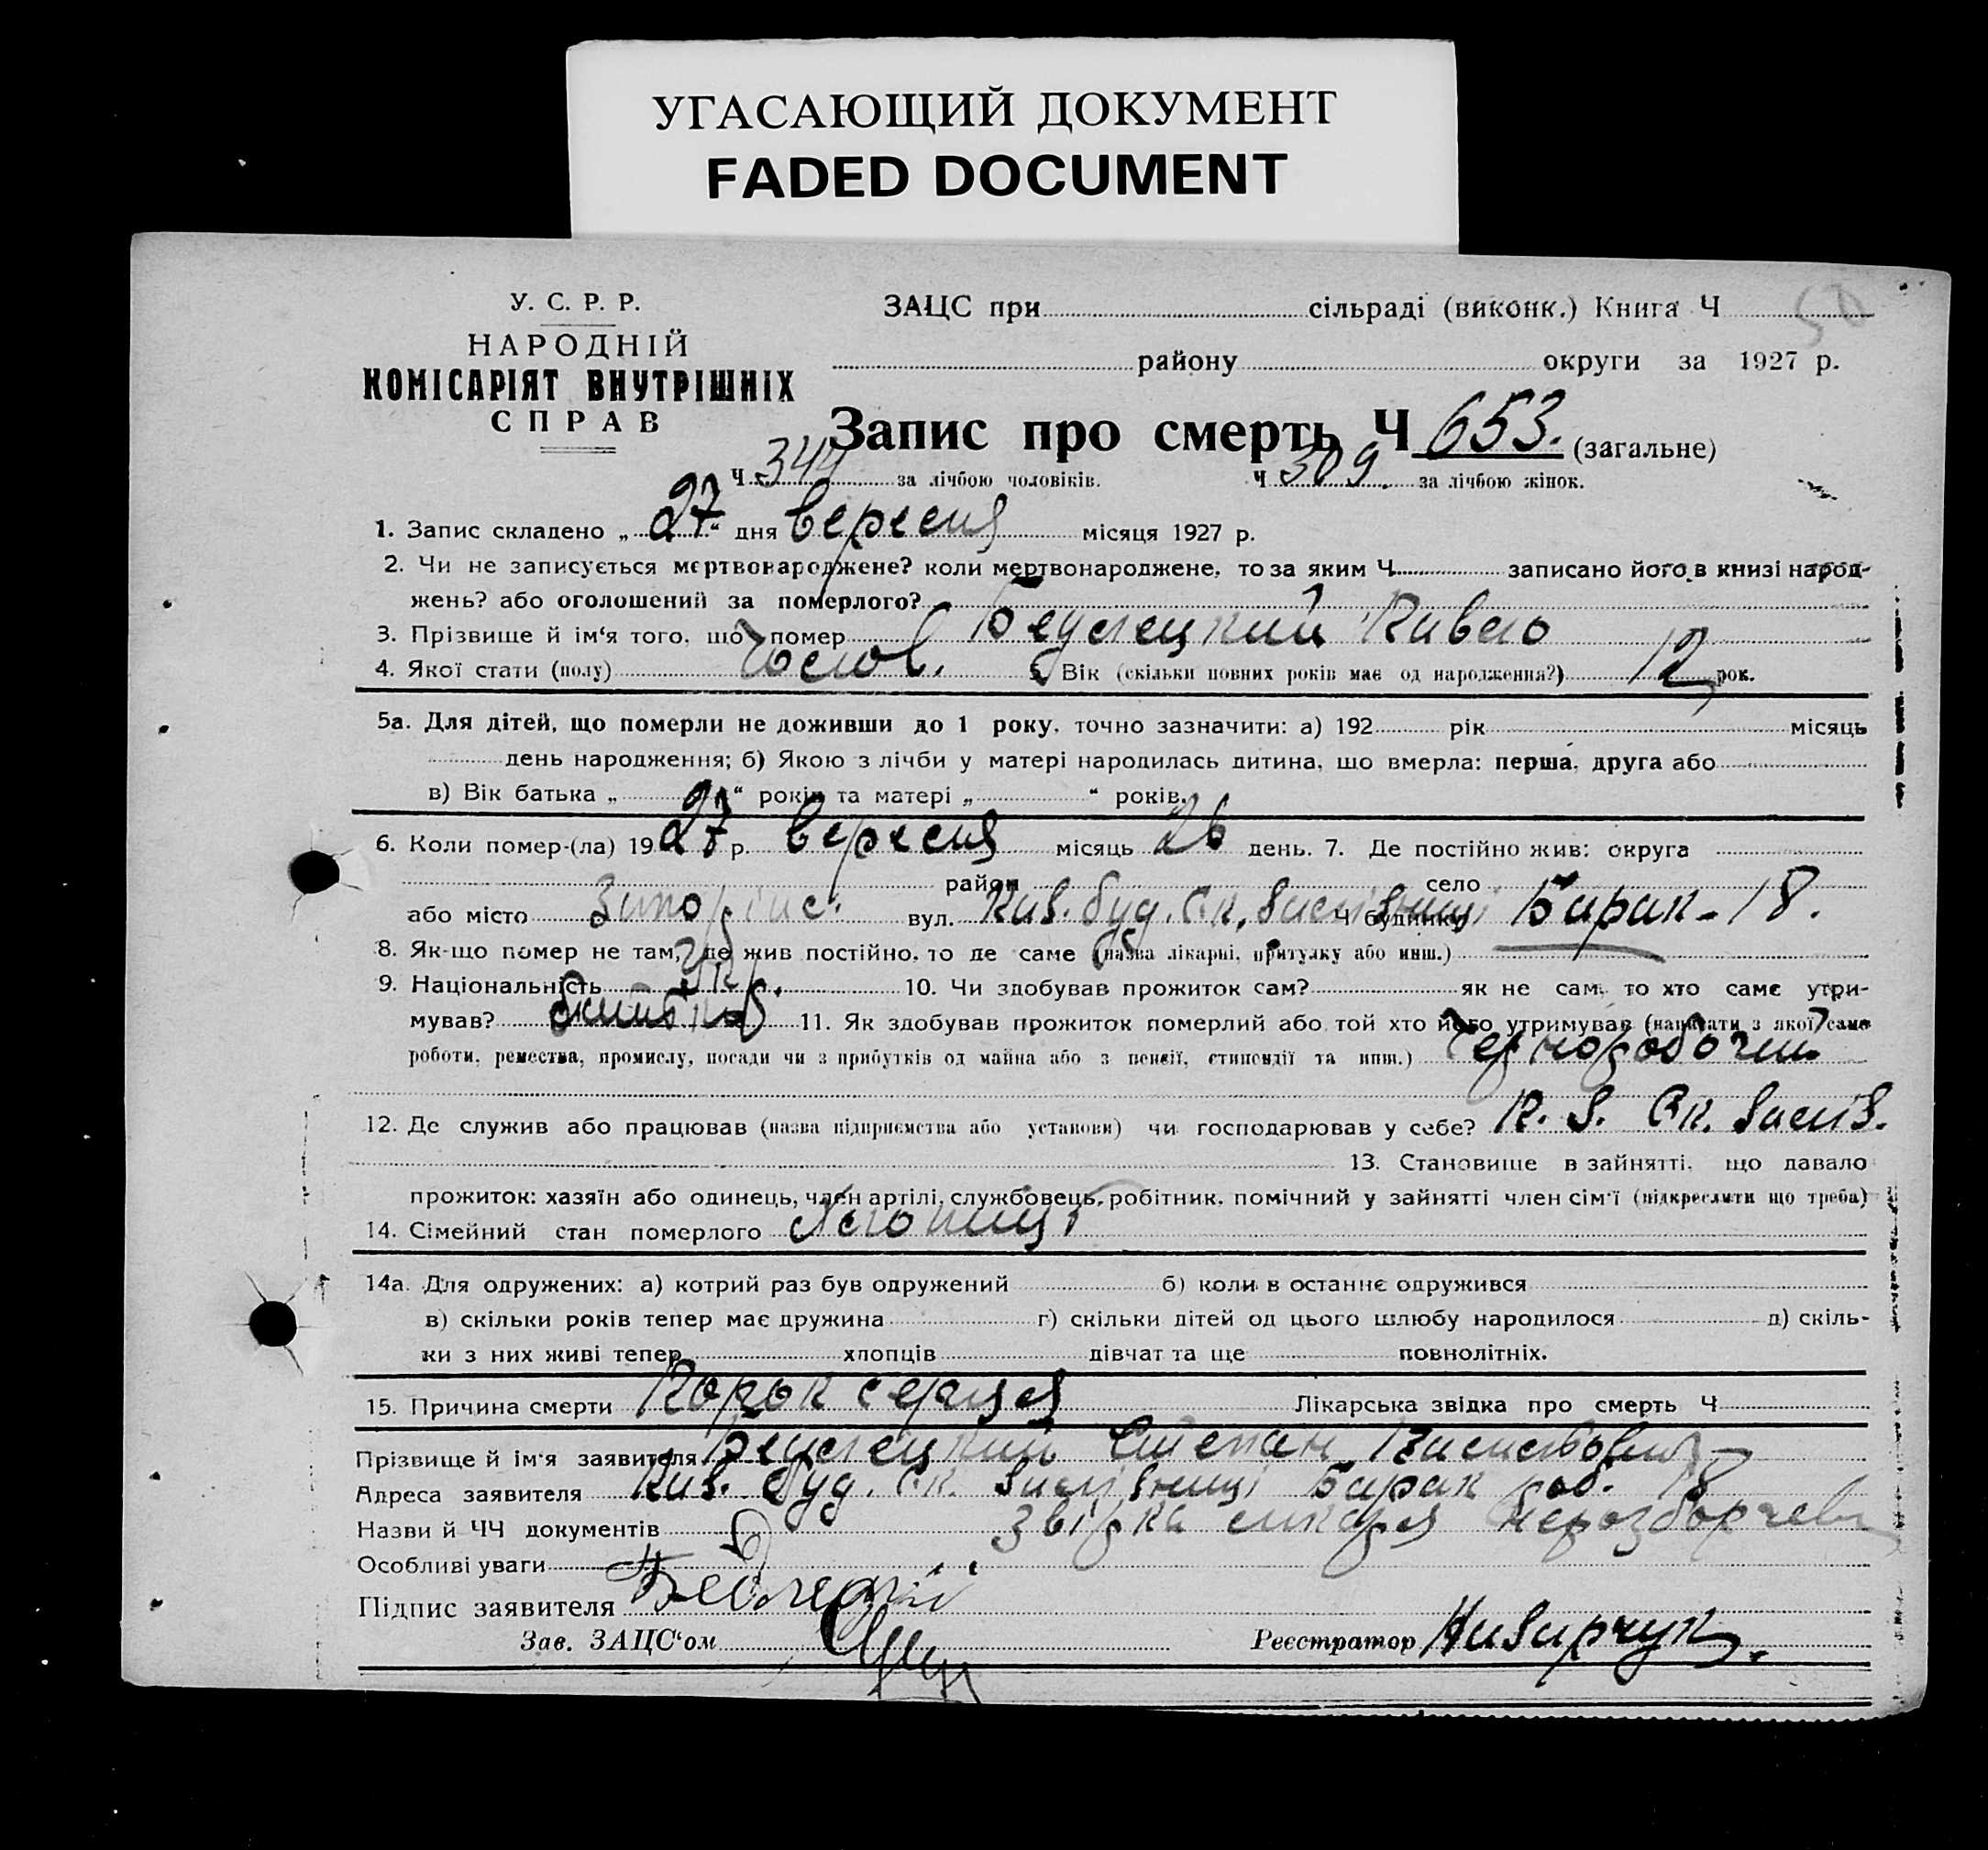 УГАСАЮЩИЙ ДОКУМЕНТ
FADED DOCUMENT
У. С. Р. Р.
НАРОДНІЙ
КОМІСАРІЯТ ВНУТРІШНІХ
СПРАВ
ЗАЦС при сільраді (виконк.) Книга Ч 50
району округи за 1927 р.
Запис про смерть Ч 653. (загальне)
Ч 344 за лічбою чоловіків. Ч 309. за лічбою жінок.
1. Запис складено „27“ дня вересня місяця 1927 р.
2. Чи не записується мертвонароджене? коли мертвонароджене, то за яким Ч записано його в книзі народ-
жень? або оголошений за померлого?
3. Прізвище й ім‘я того, що помер Павло
4. Якої стати (полу) Чолов. 5 Вік (скільки повних років має од народження?) 12 рок.
5а. Для дітей, що померли не доживши до 1 року, точно зазначити: а) 192 рік місяць
день народження; б) Якою з лічби у матері народилась дитина, що вмерла: перша, друга або
в) Вік батька „ “ років та матері „ “ років.
6. Коли помер-(ла) 1927 р. вересня місяць 26 день. 7. Де постійно жив: округа
район село
або місто вул. Буд. Ч будинку Барак-18.
8. Як-що помер не там, де жив постійно, то де саме (назва лікарні, притулку або инш.)
9. Національність Укр. 10. Чи здобував прожиток сам? як не сам, то хто саме утри-
мував? батько 11. Як здобував прожиток померлий або той хто його утримував (написати з якої саме
роботи, ремества, промислу, посади чи з прибутків од майна або з пенсії, стипендії та инш.) Чернорабочий
12. Де служив або працював (назва підприємства або установи) чи господарював у себе?
13. Становище в зайнятті, що давало
прожиток: хазяїн або одинець, член артілі, службовець, робітник, помічний у зайнятті член сім‘ї (підкреслити що треба)
14. Сімейний стан померлого
14а. Для одружених: а) котрий раз був одружений б) коли в останнє одружився
в) скільки років тепер має дружина г) скільки дітей од цього шлюбу народилося д) скіль-
ки з них живі тепер хлопців дівчат та ще повнолітніх.
15. Причина смерти Порок серця Лікарська звідка про смерть Ч
Прізвище й ім‘я заявителя Степан
Адреса заявителя Буд. Барак 18
Назви й ЧЧ документів Звідка лікаря
Особливі уваги
Підпис заявителя
Зав. ЗАЦС‘ом Реєстратор